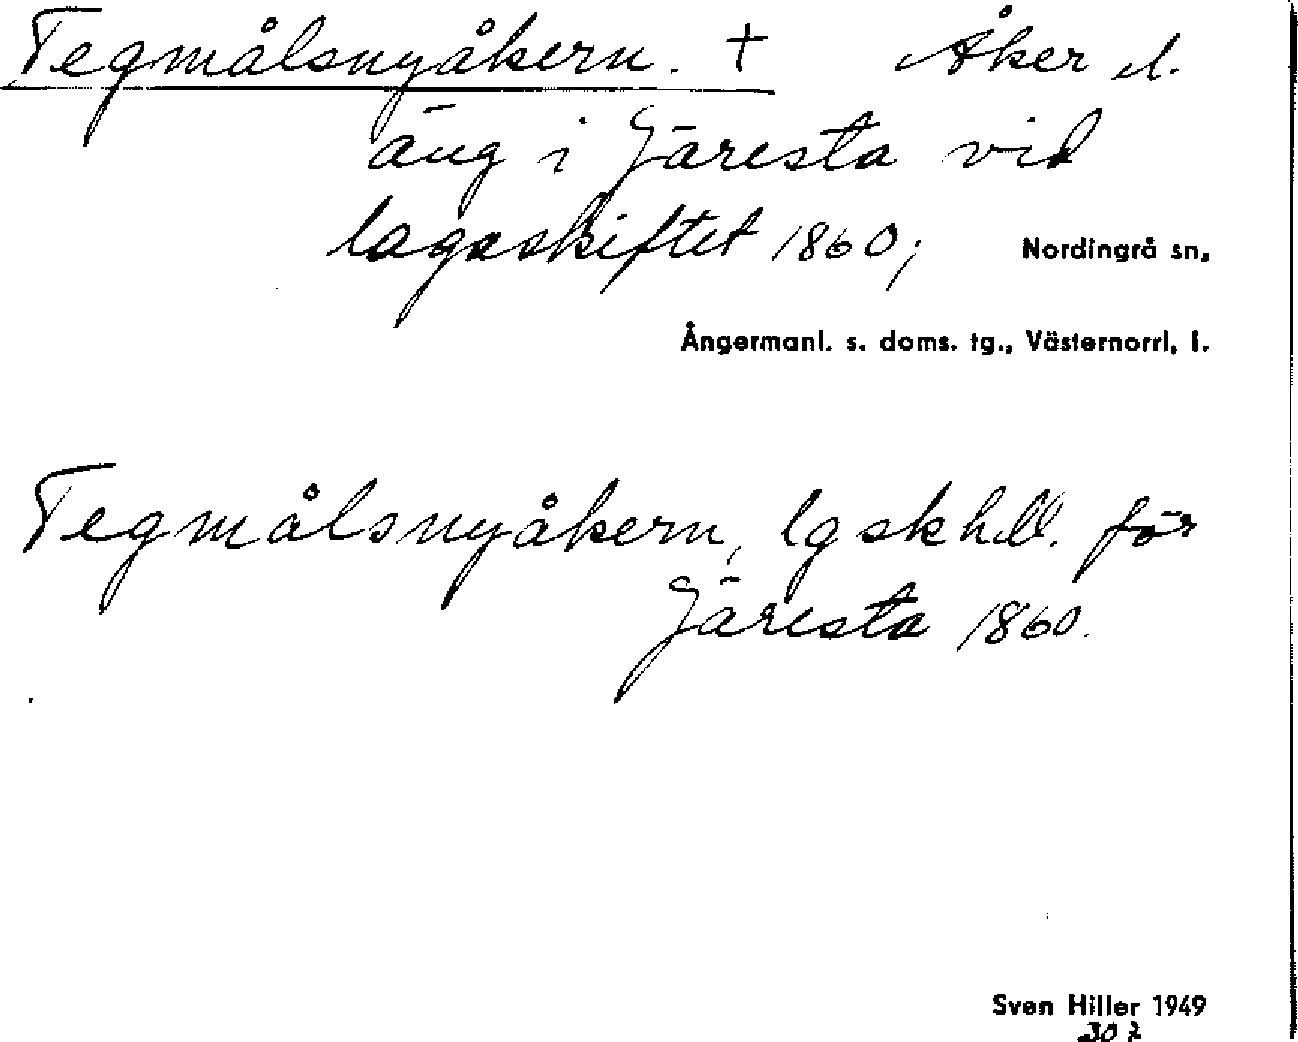 Tegmålsnyåkern. + Åker el.
äng i Järesta vid
lagaskiftet 1860; Nordingrå sn,
Ångermanl. s. doms. tg., Västernorrl. l.
Tegmålsnyåkern, lgskhdl. för
Järesta 1860.
Sven Hiller 1949